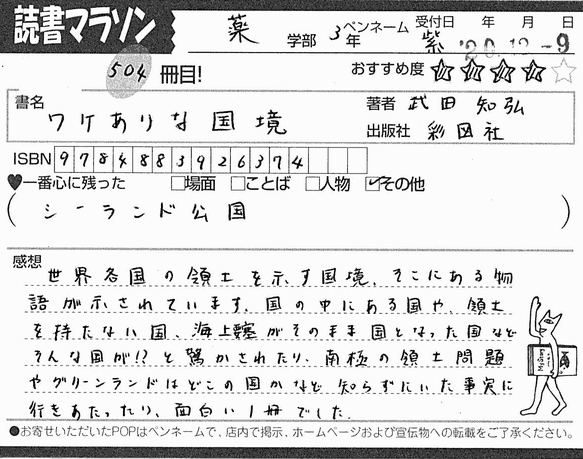 読書マラソン
薬 学部 3年 ペンネーム 紫 受付日 年 月 日
'20.12.-9
504 冊目! おすすめ度 ★★★★☆
書名 ワケありな国境
著者 武田知弘
出版社 彩図社
ISBN 9784883926374
♥一番心に残った □場面 □ことば □人物 ☑その他
(シーランド公国)
感想
世界各国の領土を示す国境、そこにある物
語が示されています。国の中にある国や、領土
を持たない国、海上要塞がそのまま国となった国など
そんな国が!?と驚かされたり、南極の領土問題
やグリーンランドはどこの国かなど知らずにいた事実に
行きあたったり、面白い1冊でした。
●お寄せいただいたPOPはペンネームで、店内で掲示、ホームページおよび宣伝物への転載をご了承ください。